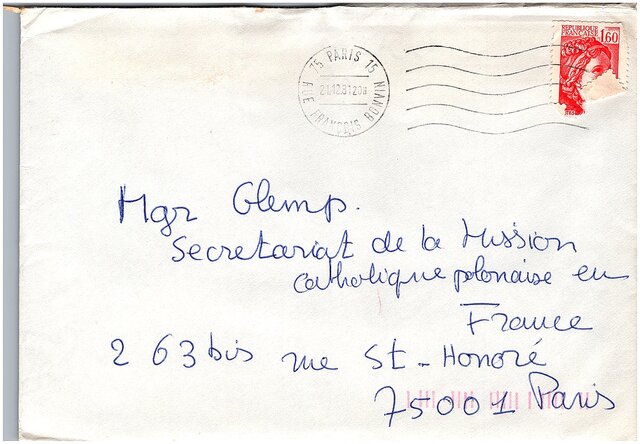 REPUBLIQUE
FRANCAISE
1,60
75 PARIS 15
21.12.81 20H
RUE FRANÇOIS BONVIN
Mgr Glemp.
Secretariat de la Mission
catholique polonaise en
France
263 bis rue St-Honoré
75001 Paris